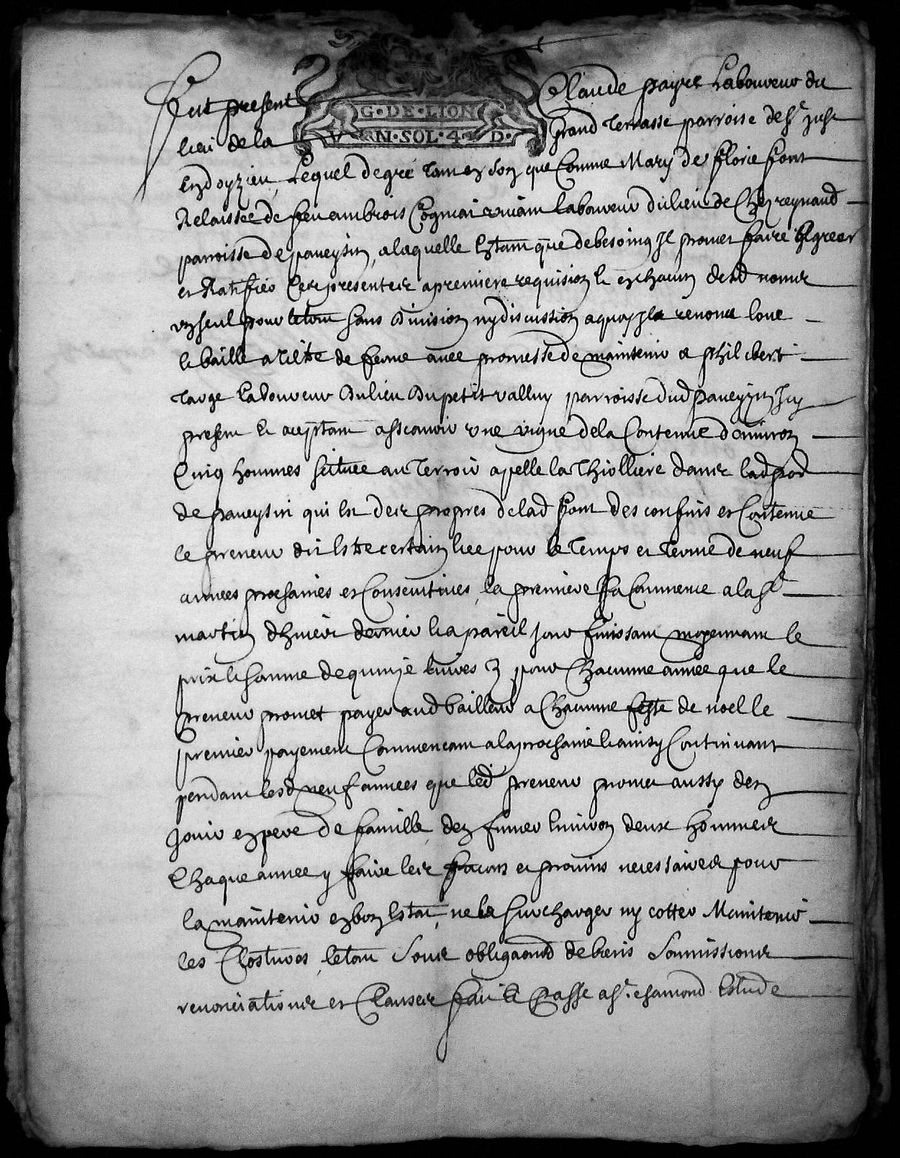 G · DE · LION
V N · SOL · 4 · D ·
Fut present Claude payre Laboureur du
lieu de la grand Terrasse parroisse de St Just
En doyzieu, Lequel de gré tam en son que Comme Mary de florie font
Relaissée de feu ambrois vivam laboureur du lieu de Cheyreynaud
parroisse de paveysin, a laquelle Estam que de besoing Il promet faire agreer
et Ratifier Ces presentes a premiere requision & en chacun desd noms
un seul pour letout sans division ny discussion a quoy Il a renoncé loue
& baille a tiltre de ferme avec promesse de maintenir a philibert
Laboureur du lieu du petit vallluy parroisse dud paveyzin Icy
presem & aceptam assçavoir une vigne de la Contenue d'environ
Cinq hommes scituée au Terroir apellé la Thiolliere dans lad par
de paveysin qui est des propres de lad font des confins et Contenue
le preneur dit Estre certain & ce pour le Temps et Terme de neuf
années prochaines et Consecutives, la premiere a Commencé a la St
martin dhiver dernier & a pareil jour finissam moyennam le
prix & somme de quinze livres pour Chacunne année que le
preneur promet payer aud bailleur a Chacunne feste de noel le
premier payement Commencam a la prochaine & ainsy Continuant
pendam lesd neuf années que led preneur promet aussy den
Jouir en pere de famille, den fumer Environ deux hommes
Chaque année y faire les façons et provins necessaires pour
la maintenir en bon Estat, ne la surcharger ny cotter Maintenir
les Clostures, letout sous obligaond de biens Soumissions
renonciations et Clauses fait & Passé a St chamond Estude